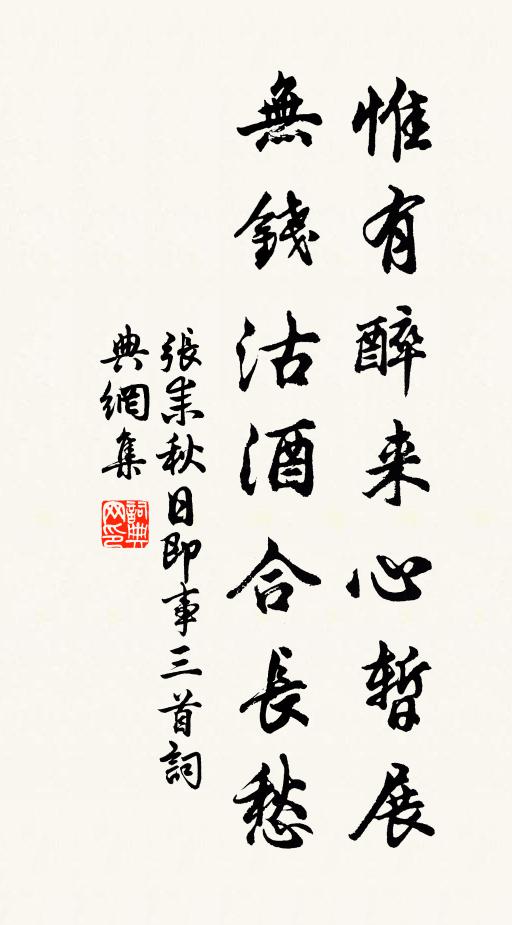 惟有醉来心暫展
無錢沽酒合長愁
張耒秋日即事三首詞
典網集
詞典
网印